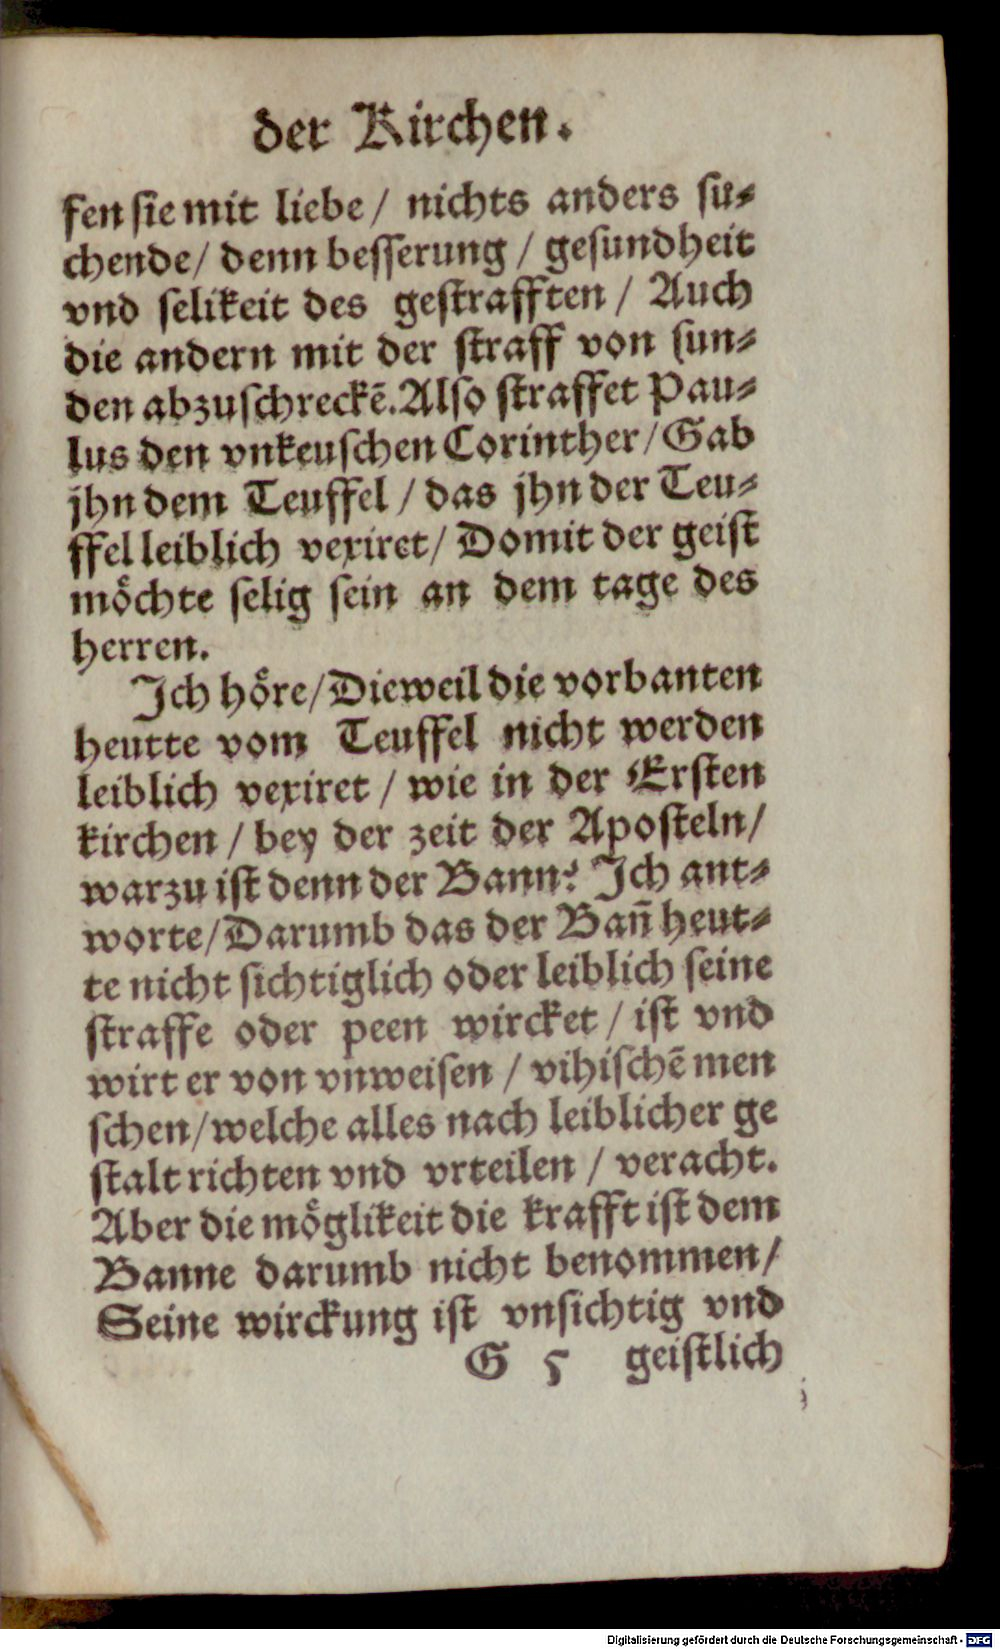 der Kirchen.
fen sie mit liebe / nichts anders sů⸗
chende / denn besserung / gesundheit
vnd selikeit des gestrafften / Auch
die andern mit der straff von sun⸗
den abzuschreckẽ. Also straffet Pau⸗
lus den vnkeuschen Corinther / Gab
jhn dem Teuffel / das jhn der Teu⸗
ffel leiblich vexiret / Domit der geist
moͤchte selig sein an dem tage des
herren.
Ich hoͤre / Dieweil die vorbanten
heutte vom Teuffel nicht werden
leiblich vexiret / wie in der Ersten
kirchen / bey der zeit der Aposteln /
warzu ist denn der Bann? Ich ant⸗
worte / Darumb das der Bañ heut⸗
te nicht sichtiglich oder leiblich seine
straffe oder peen wircket / ist vnd
wirt er von vnweisen / vihischẽ men
schen / welche alles nach leiblicher ge
stalt richten vnd vrteilen / veracht.
Aber die moͤglikeit die krafft ist dem
Banne darumb nicht benommen /
Seine wirckung ist vnsichtig vnd
G 5 geistlich
Digitalisierung gefördert durch die Deutsche Forschungsgemeinschaft - DFG